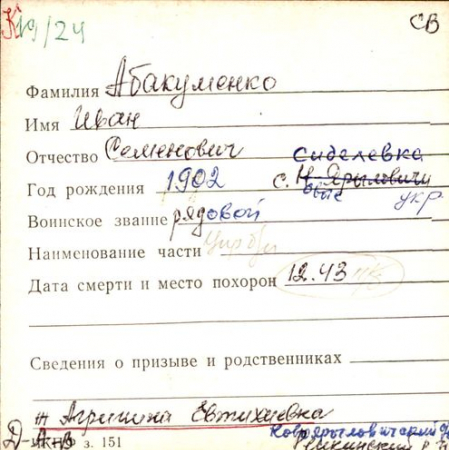 19/24 СВ
Фамилия Абакуменко
Имя Иван
Отчество Семенович Сиделевка
Год рождения 1902 с. Н. Ярыловичи
Воинское звание рядовой укр.
Наименование части
Дата смерти и место похорон 12.43
Сведения о призыве и родственниках
ж Агрипина Евтихиевна
Д- з. 151